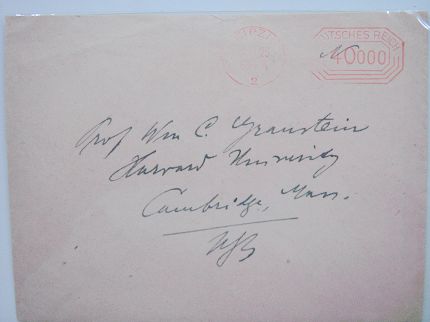 IPZI
23
2
TSCHES REICH
40000
Prof Wm C. Graustein
Harvard University
Cambridge, Mass.